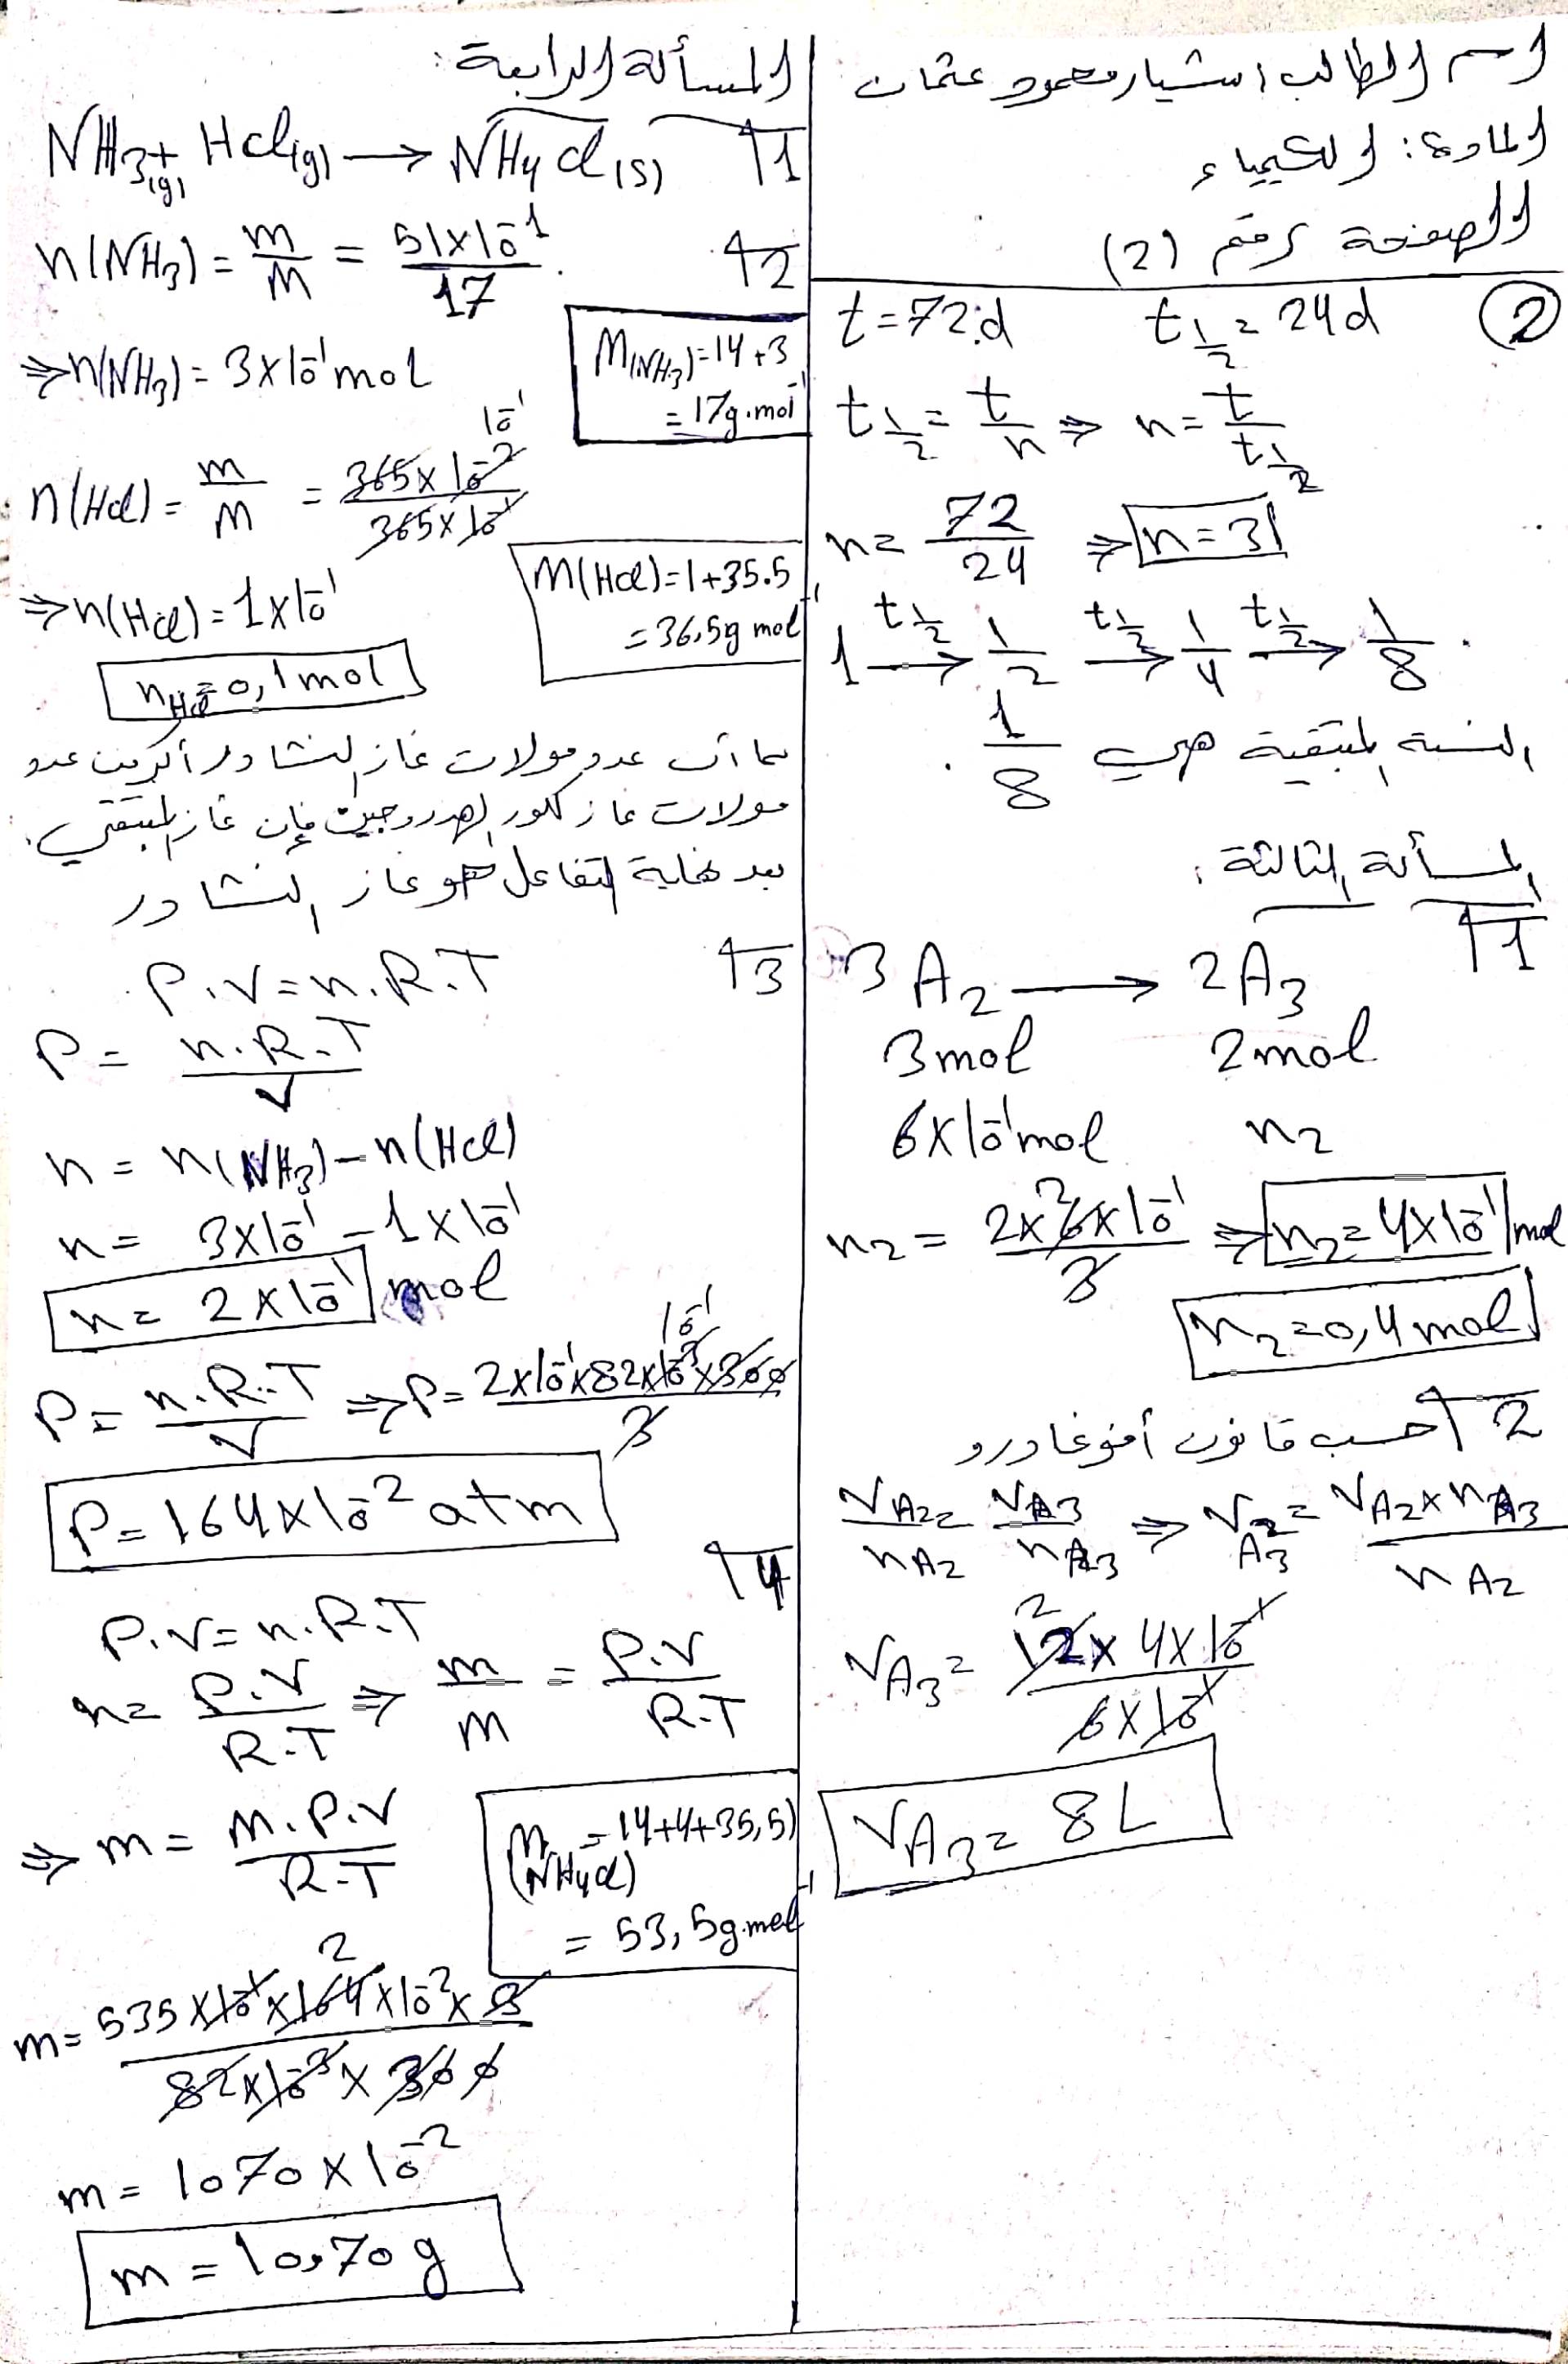 اسم الطالب: استيار محمود عثمان
المادة: الكيمياء
الصفحة رقم (2)
② t=72d t½=24d
t½ = t/n ⇒ n = t/t½
n = 72/24 ⇒ n=3
1 →(t½) 1/2 →(t½) 1/4 →(t½) 1/8 .
النسبة المتبقية هي 1/8 .
المسألة الثالثة:
1
3A₂ → 2A₃
3mol 2mol
6×10⁻¹mol n₂
n₂ = 2×6×10⁻¹/3 ⇒ n₂=4×10⁻¹ mol
n₂=0,4mol
2 حسب قانون أفوغادرو
V A₂/n A₂ = V A₃/n A₃ ⇒ V A₃ = V A₂×n A₃/n A₂
V A₃ = 12×4×10⁻¹/6×10⁻¹
V A₃ = 8L
المسألة الرابعة:
1 NH₃(g) + HCl(g) → NH₄Cl(s)
2 n(NH₃) = m/M = 51×10⁻¹/17
⇒ n(NH₃) = 3×10⁻¹mol
M(NH₃)=14+3
=17g.mol⁻¹
n(HCl) = m/M = 365×10⁻²/365×10⁻¹ 10⁻¹
M(HCl)=1+35.5
=36,5g mol⁻¹
⇒ n(HCl) = 1×10⁻¹
n HCl=0,1mol
بما أن عدد مولات غاز النشادر أكبر من عدد
مولات غاز كلور الهدروجين فإن غاز المتبقي
بعد نهاية التفاعل هو غاز النشادر
3 P.V=n.R.T
P = n.R.T/V
n = n(NH₃)-n(HCl)
n = 3×10⁻¹-1×10⁻¹
n = 2×10⁻¹ mol
P = n.R.T/V ⇒ P = 2×10⁻¹×82×10⁻³×300/3 10⁻¹
P=164×10⁻² atm
4
P.V=n.R.T
n = P.V/R.T ⇒ m/m = P.V/R.T
⇒ m = M.P.V/R.T
M(NH₄Cl) = 14+4+35,5
= 53,5g.mol⁻¹
m = 535×10⁻¹×164×10⁻²×3/82×10⁻³×300 2
m = 1070×10⁻²
m = 10,70g